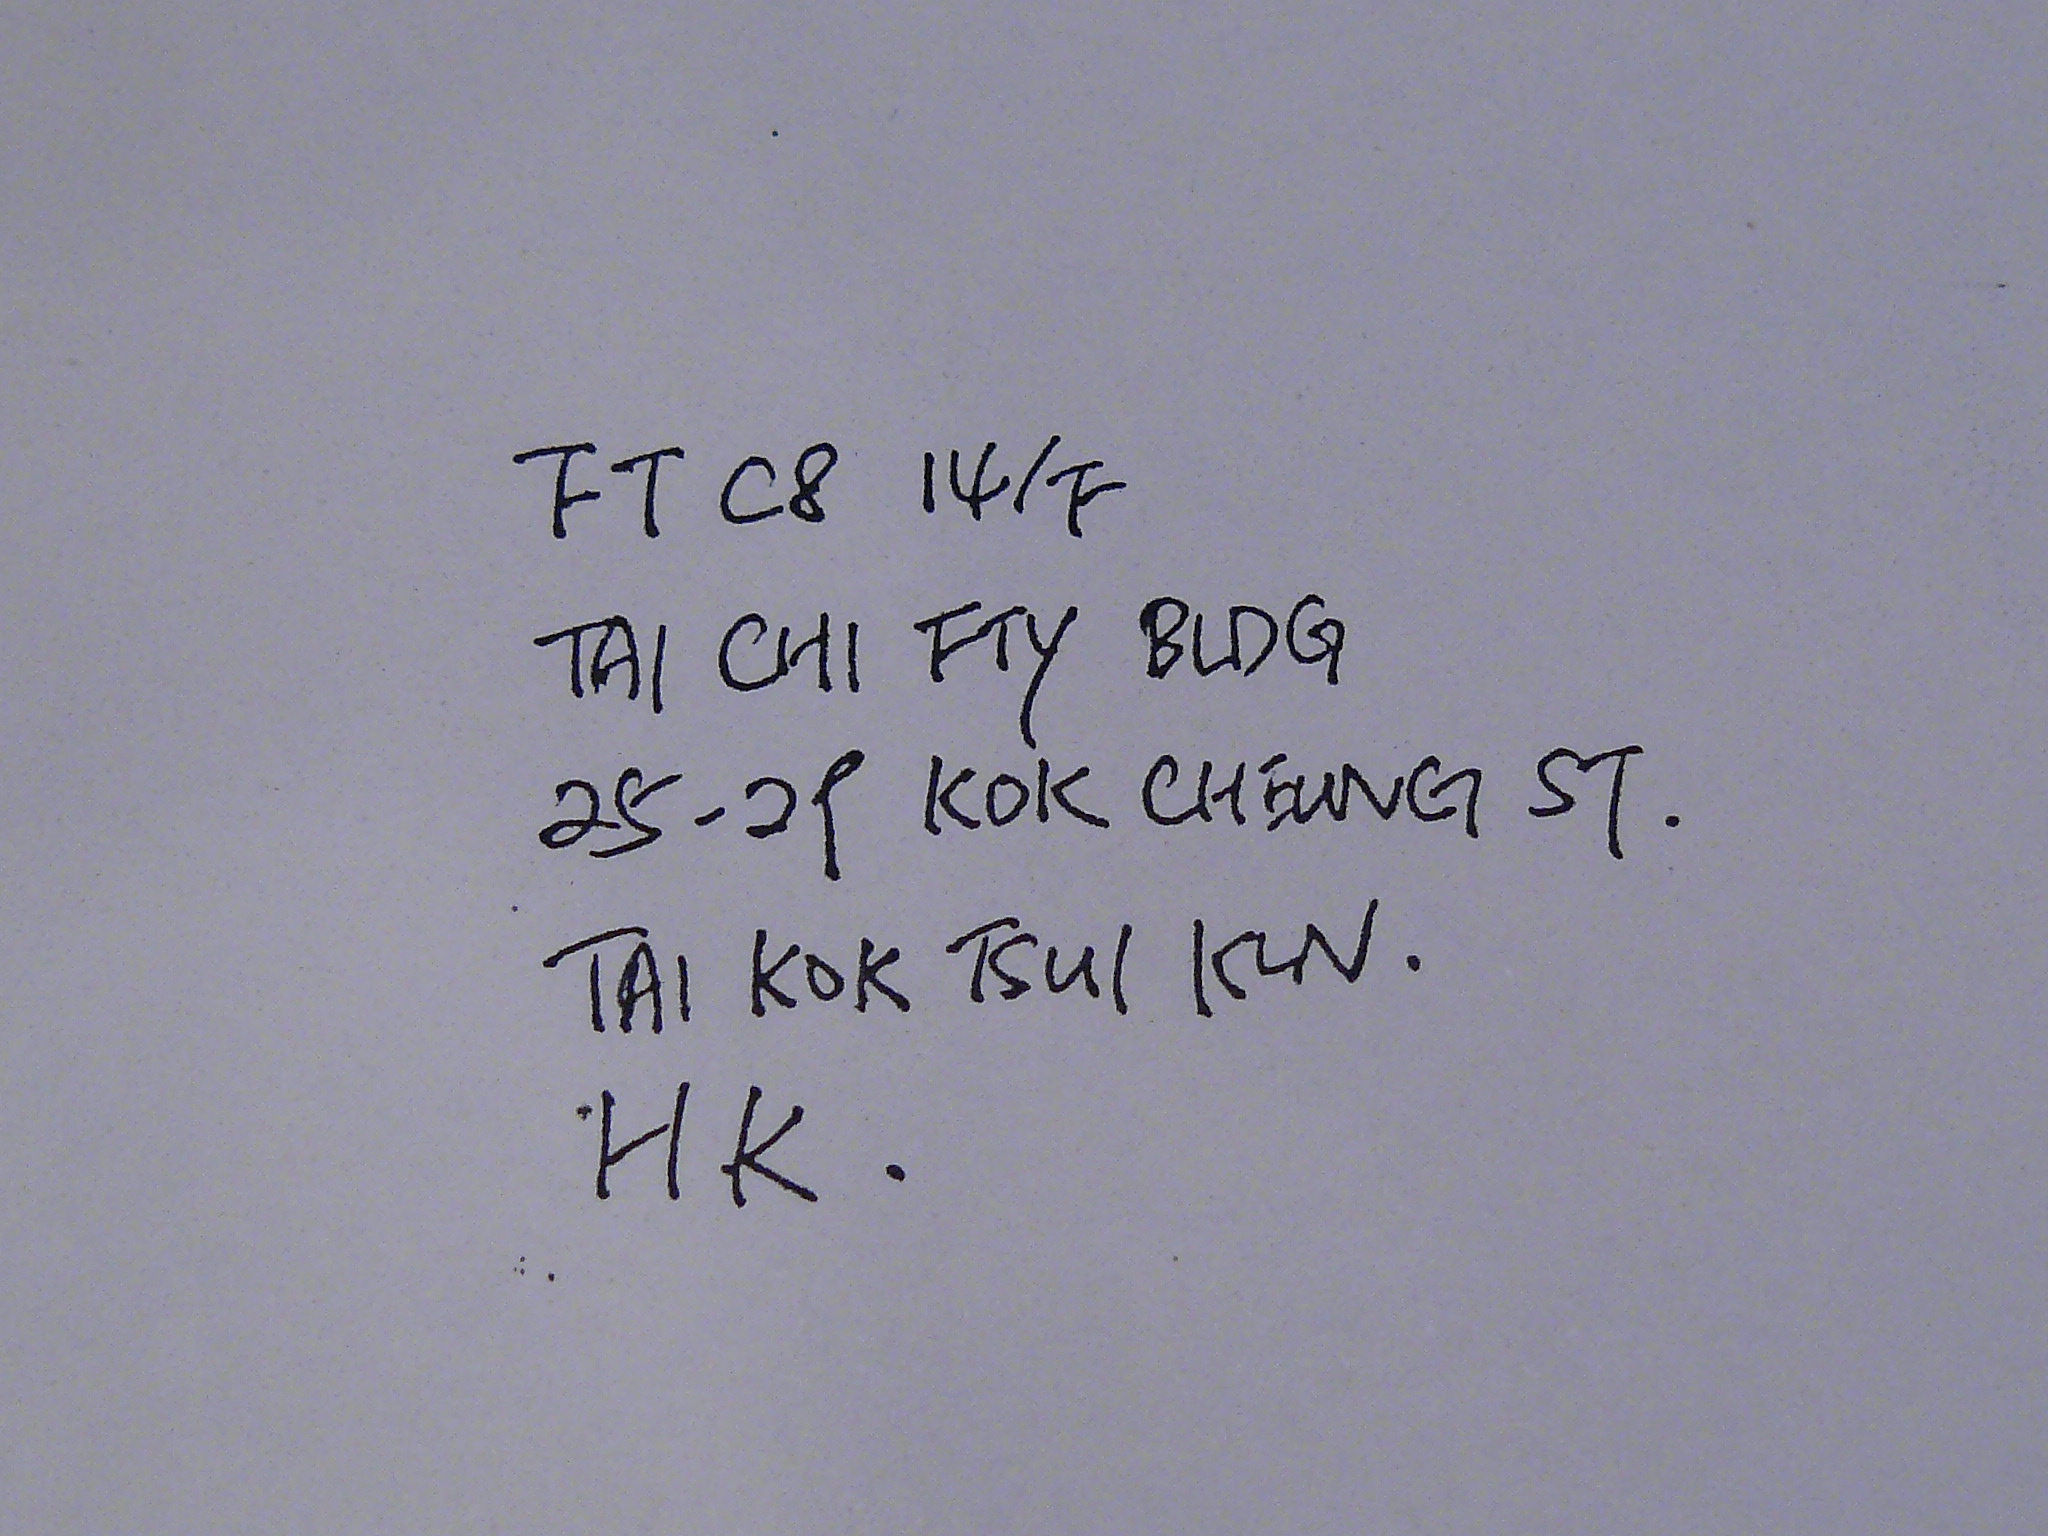 FT C8 14/F
TAI CHI FTY BLDG
25-29 KOK CHEUNG ST.
TAI KOK TSUI KLN.
HK.